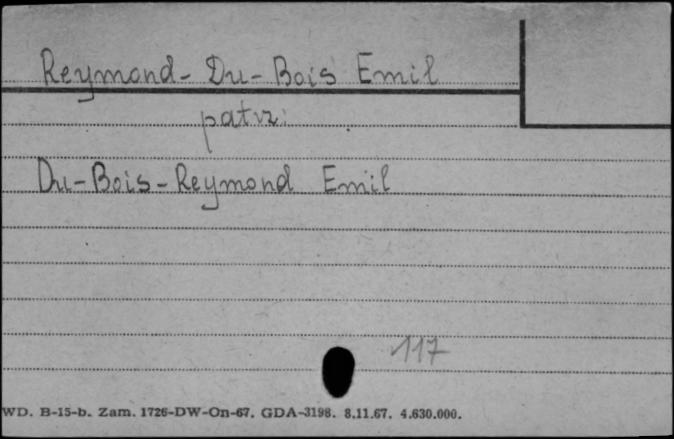 Reymond-Du-Bois Emil
patrz:
Du-Bois-Reymond Emil
117
WD. B-15-b. Zam. 1726-DW-On-67. GDA-3198. 8.11.67. 4.630.000.